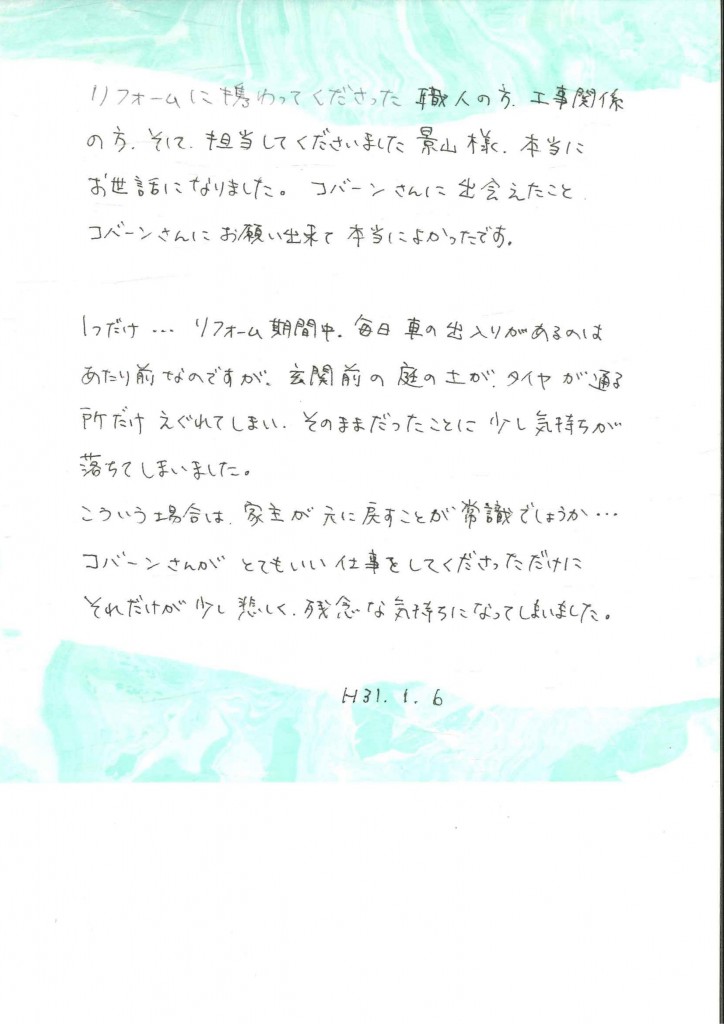 リフォームに携わってくださった 職人の方、工事関係
の方、そして、担当してくださいました 景山様、本当に
お世話になりました。 コバーンさんに 出会えたこと
コバーンさんに お願い出来て 本当によかったです。
1つだけ … リフォーム期間中、毎日 車の出入りがあるのは
あたり前なのですが、玄関前の 庭の土が、タイヤが通る
所だけ えぐれてしまい、そのままだったことに 少し気持ちが
落ちてしまいました。
こういう場合は、家主が 元に戻すことが 常識でしょうか…
コバーンさんが とてもいい仕事をしてくださっただけに
それだけが 少し 悲しく、残念な気持ちになってしまいました。
H31. 1. 6